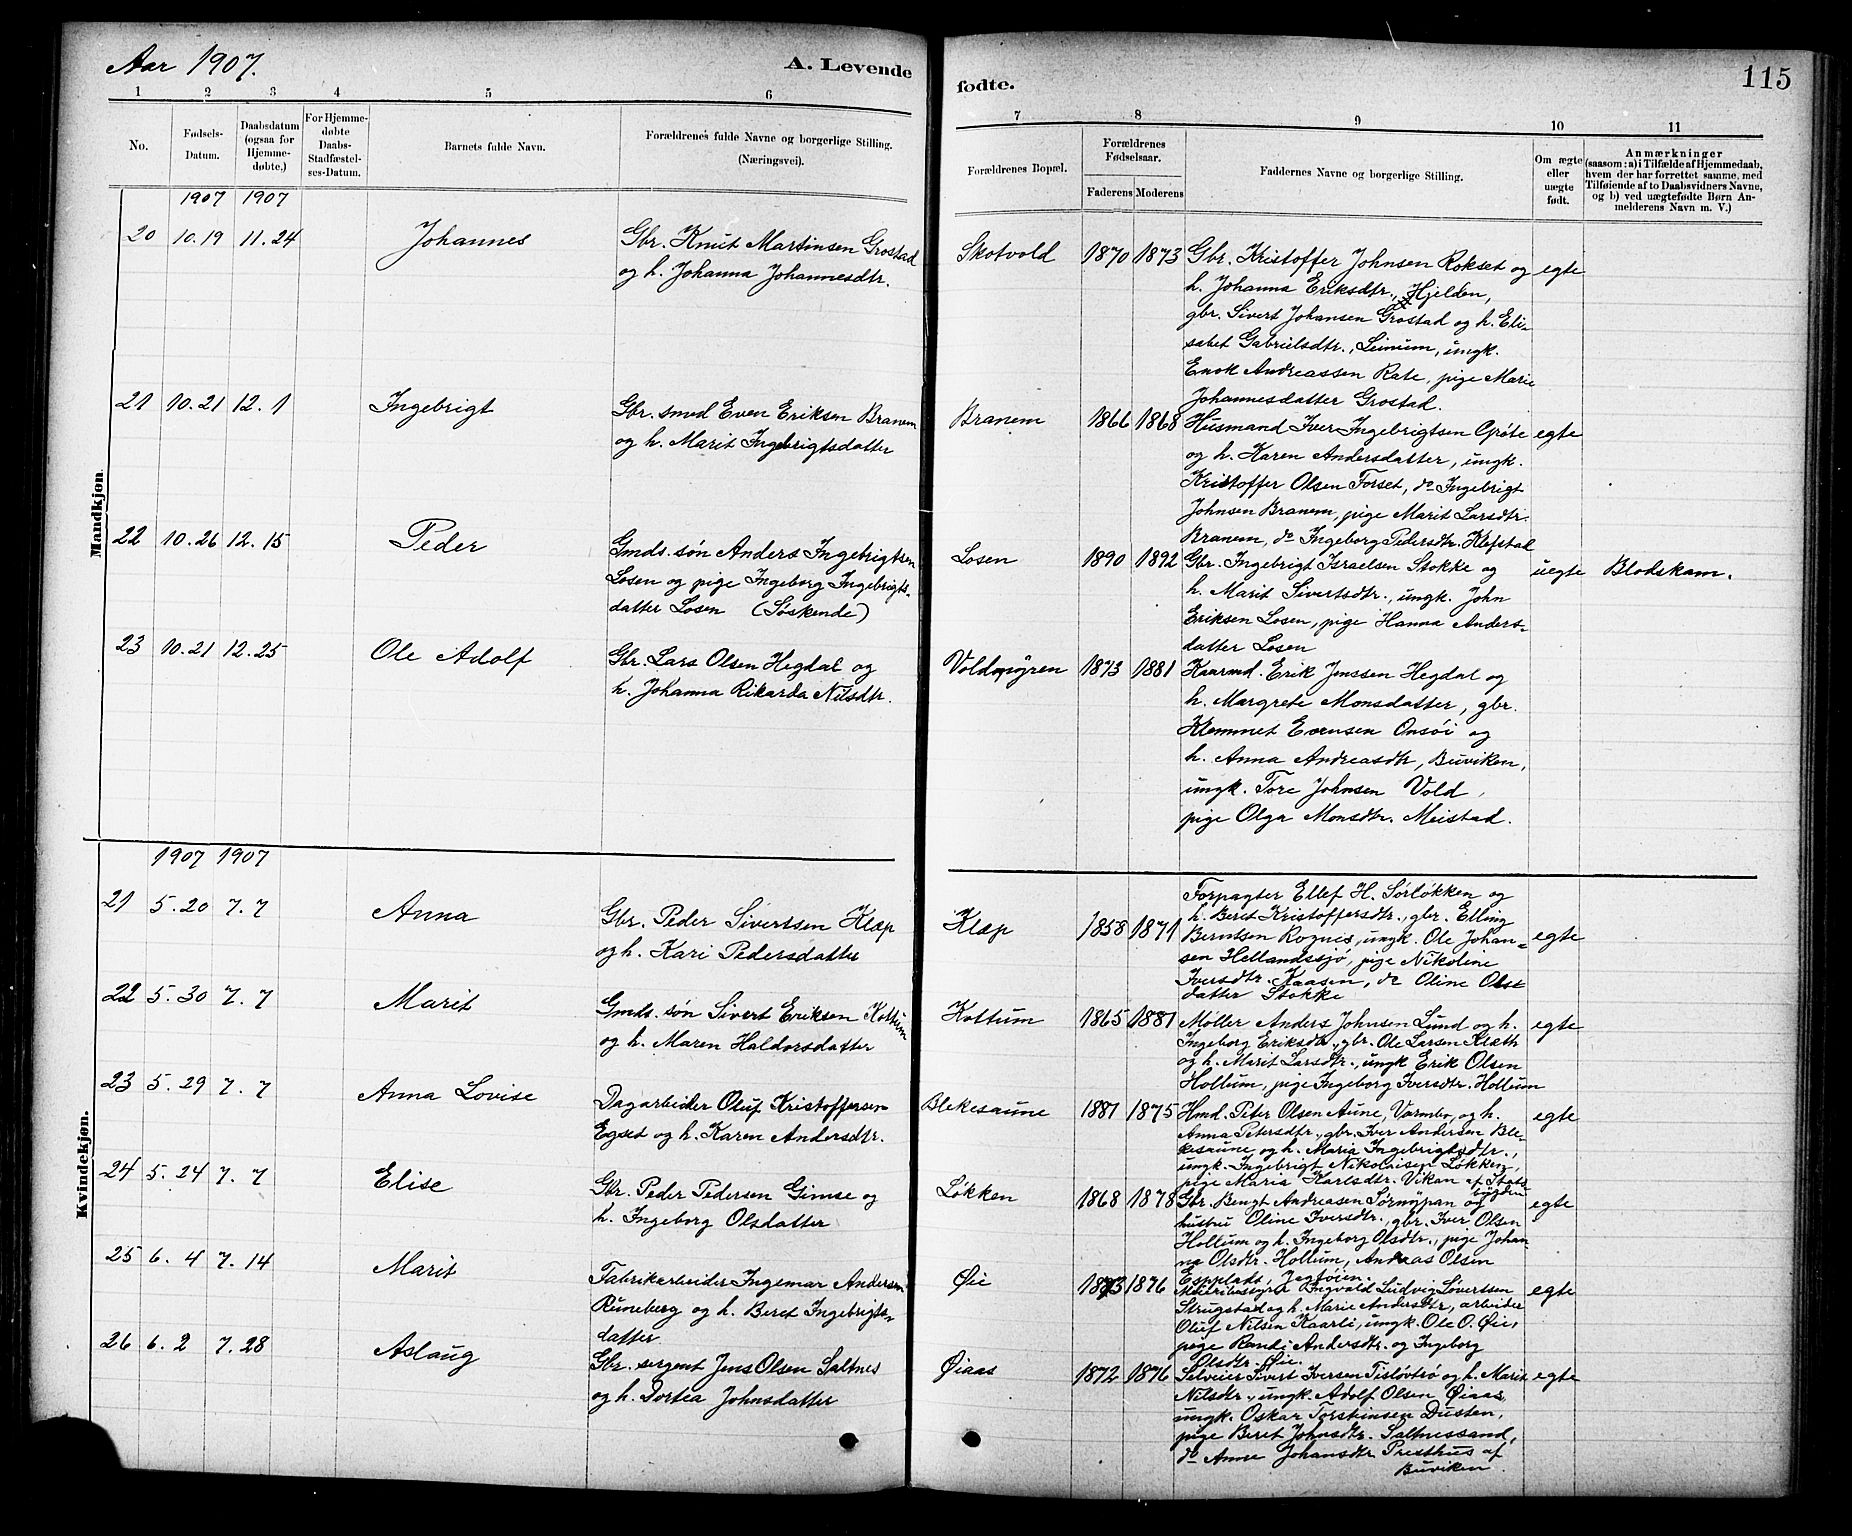 Aar 1907.
A. Levende
fødte.
115
1 2 3 4 5 6
7 8 9 10 11
No.
Fødsels-Datum.
Daabsdatum (ogsaa for Hjemme-døbte.)
For Hjemme-døbte Daabs-Stadfæstel-ses-Datum.
Barnets fulde Navn.
Forældrenes fulde Navne og borgerlige Stilling. (Næringsvei).
Forældrenes Bopæl.
Forældrenes Fødselsaar.
Faderens Moderens
Faddernes Navne og borgerlige Stilling.
Om ægte eller uægte født.
Anmærkninger
(saasom: a) i Tilfælde af Hjemmedaab,
hvem der har forrettet samme, med
Tilføiende af to Daabsvidners Navne,
og b) ved uægtefødte Børn An-
melderens Navn m. V.)
Mandkjøn.
1907 1907
20 10.19 11.24 Johannes
Gbr. Knut Martinsen Grostad
og h. Johanna Johannesdtr.
Skotvold 1870 1873
Gbr. Kristoffer Johnsen Rokset og
h. Johanna Eriksdtr., Hjelden,
gbr. Sivert Johansen Grostad og h. Eli-
sabet Gabrielsdtr., Leinum, ungk.
Enok Andreassen Rate, pige Marie
Johannesdatter Grostad.
egte
21 10.21 12.1 Ingebrigt
Gbr. smed Even Eriksen Branem
og h. Marit Ingebrigtsdatter
Branem 1866 1868
Husmand Iver Ingebrigtsen Grøte
og h. Karen Andersdatter, ungk.
Kristoffer Olsen Forset, do Ingebrigt
Johnsen Branem, pige Marit Larsdtr.
Branem, do Ingeborg Pedersdtr. Klefstad
egte
22 10.26 12.15 Peder
Gmds. søn Anders Ingebrigtsen
Losen og pige Ingeborg Ingebrigts-
datter Losen (Søskende)
Losen 1890 1892
Gbr. Ingebrigt Israelsen Stokke og
h. Marit Sivertsdtr., ungk. John
Eriksen Losen, pige Hanna Anders-
datter Losen
uegte Blodskam.
23 10.21 12.25 Ole Adolf
Gbr. Lars Olsen Hegdal og
h. Johanna Rikarda Nilsdtr.
Voldmyren 1873 1881
Kaarmd. Erik Jenssen Hegdal og
h. Margrete Monsdatter, gbr.
Klemmet Evensen Onsøi og
h. Anna Andreasdtr, Buviken,
ungk. Tore Johnsen Vold,
pige Olga Monsdtr. Meistad.
Kvindekjøn.
1907 1907
21 5.20 7.7 Anna
Gbr. Peder Sivertsen Klæp
og h. Kari Pedersdatter
Klæp 1858 1871
Forpagter Ellef H. Sørløkken og
h. Beret Kristoffersdtr., gbr. Elling
Berntsen Rognes, ungk. Ole Johan-
sen Hellandssjø, pige Nikoline
Iversdtr. Kaasen, do Oline Ols
datter Stokke
egte
22 5.30 7.7 Marit
Gmds. søn Sivert Eriksen Kottum
og h. Maren Haldorsdatter
Kottum 1865 1881
Møller Anders Johnsen Lund og h.
Ingeborg Eriksdtr., gbr. Ole Larsen Klæth
og h. Marit Larsdtr., ungk Erik Olsen
Hollum, pige Ingeborg Iversdtr. Hollum
egte
23 5.29 7.7 Anna Lovise
Dagarbeider Oluf Kristoffersen
Egset og h. Karen Andersdtr.
Blekesaune 1881 1875
Hmd. Peter Olsen Aune, Varmbo, og h.
Anna Petersdtr., gbr. Iver Andersen Ble-
kesaune og h. Maria Ingebrigtsdtr.,
ungk. Ingebrigt Nikolaisen Løkken,
pige Maria Karlsdtr. Vikan af Stads
bygden
egte
24 5.24 7.7 Elise
Gbr. Peder Pedersen Gimse og
h. Ingeborg Olsdatter
Løkken 1868 1878
Gbr. Bengt Andreasen Sørnypan og
hustru Oline Iversdtr., gbr. Iver Olsen
Hollum og h. Ingeborg Olsdtr., pige Johan
na Olsdtr. Hollum, Andreas Olsen
Espplads, Jegtøien.
egte
25 6.4 7.14 Marit
Fabrikarbeider Ingemar Andersen
Runeberg og h. Beret Ingebrigts-
datter
Øie 1873 1876
Meieribestyrer Ingvald Ludvig Sivertsen
Strugstad og h. Marie Andersdtr, arbeider
Oluf Nilsen Kaarli, ungk. Ole O. Øie,
pige Randi Andersdtr. og Ingeborg
Olsdtr. Øie.
egte
26 6.2 7.28 Aslaug
Gbr. sergent Jens Olsen Saltnes
og h. Dortea Johnsdatter
Øiaas 1872 1876
Selveier Sivert Iversen Tisløvtrø og h. Marit
Nilsdtr., ungk. Adolf Olsen Øiaas,
ungk. Oskar Torstinsen Dusten,
pige Beret Johnsdtr. Saltnessand,
do Anne Johansdtr Presthus af
Buviken.
egte